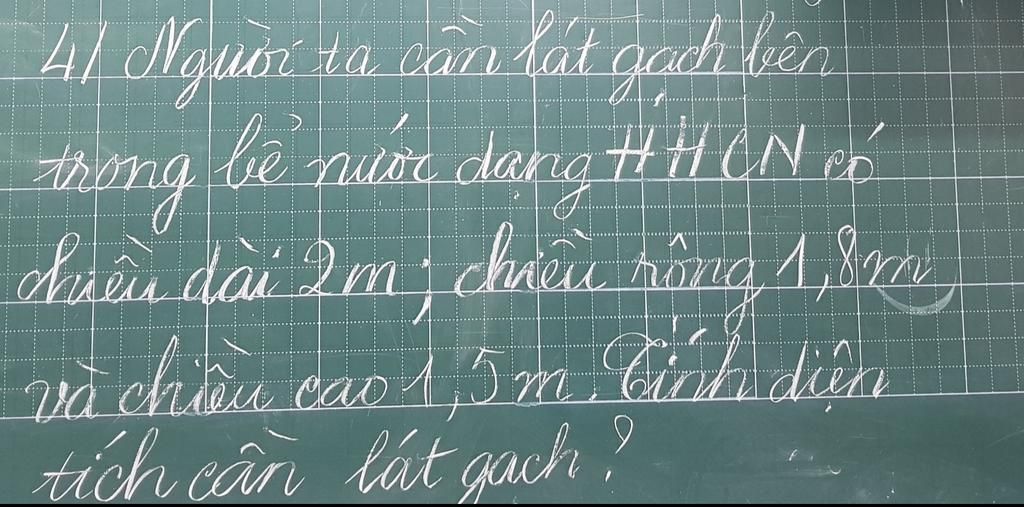 4/ Người ta cần lát gạch bên
trong bể nước dạng HHCN có
chiều dài 2m; chiều rộng 1,8m
và chiều cao 1,5m. Tính diện
tích cần lát gạch?